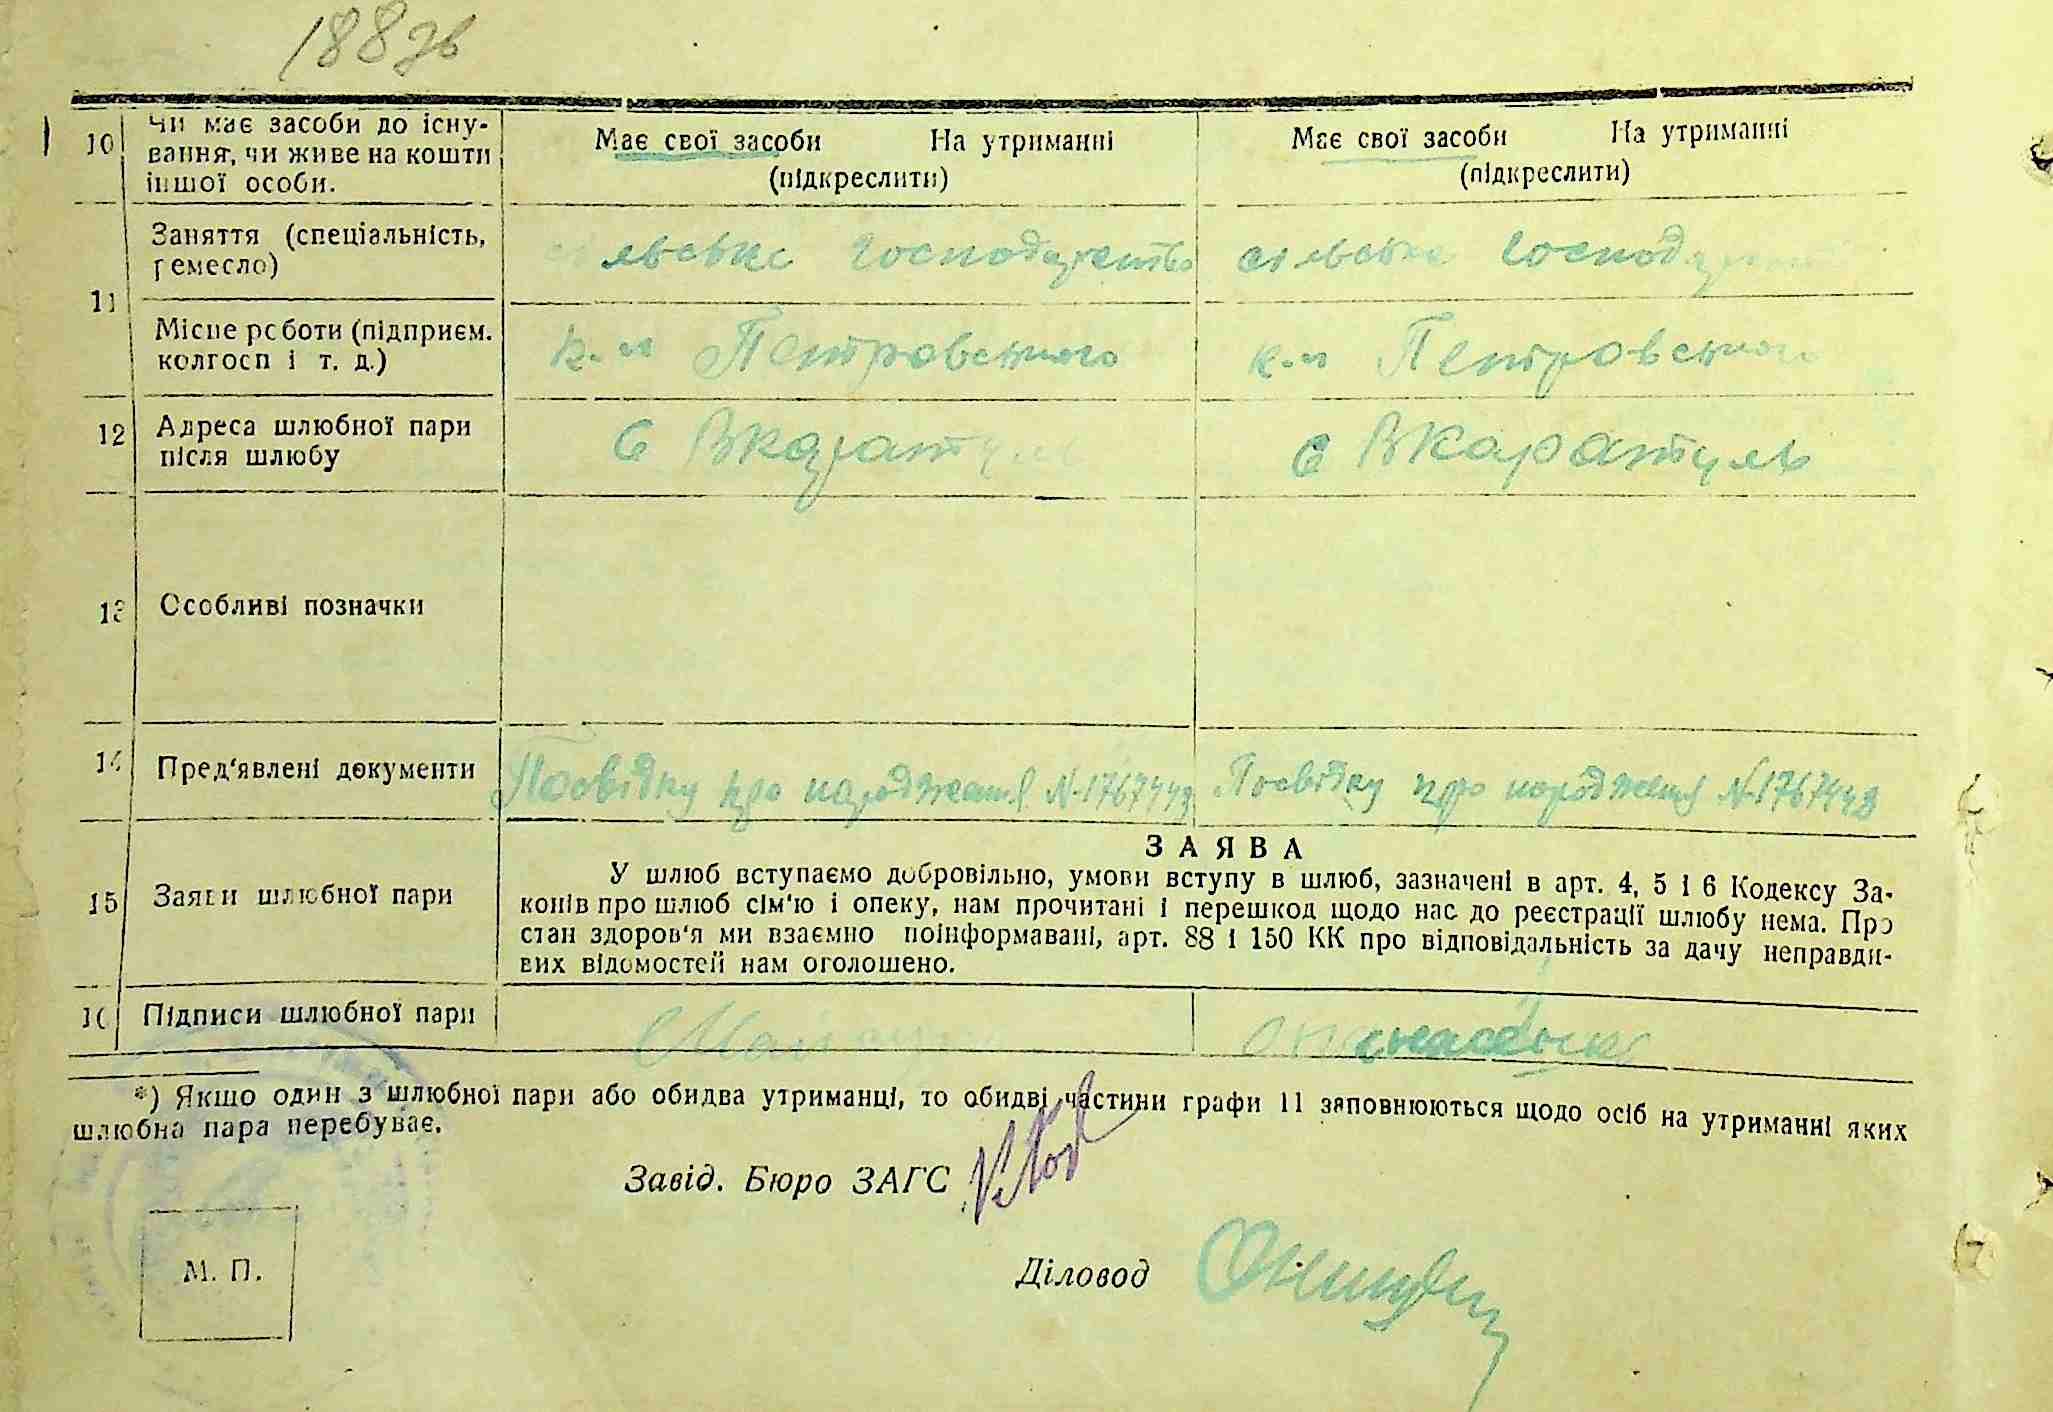 188зв
10 Чи має засоби до існу-
вання, чи живе на кошти
іншої особи.
Має свої засоби На утриманні
(підкреслити)
Має свої засоби На утриманні
(підкреслити)
11 Заняття (спеціальність,
ремесло)
сільське господарство
сільське господар
Місце роботи (підприєм.
колгосп і т. д.)
к-п Петровського
к-п Петровського
12 Адреса шлюбної пари
після шлюбу
с Вкаратуль
с Вкаратуль
13 Особливі позначки
14 Пред'явлені документи
Посвідку про народження №1767449
Посвідку про народження №1767448
15 Заяви шлюбної пари
ЗАЯВА
У шлюб вступаємо добровільно, умови вступу в шлюб, зазначені в арт. 4, 5 і 6 Кодексу За-
конів про шлюб сім'ю і опеку, нам прочитані і перешкод щодо нас до реєстрації шлюбу нема. Про
стан здоров'я ми взаємно поінформавані, арт. 88 і 150 КК про відповідальність за дачу неправди-
вих відомостей нам оголошено.
16 Підписи шлюбної пари
*) Якшо один з шлюбної пари або обидва утриманці, то обидві частини графи 11 заповнюються щодо осіб на утриманні яких
шлюбна пара перебуває.
Завід. Бюро ЗАГС
Діловод
М. П.